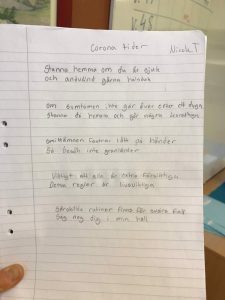 Corona tider Nicole T
Stanna hemma om du är sjuk
och använd gärna halsduk
om symtomen inte går över efter ett dygn
stanna då hemma och gör några
omikronen fastnar lätt på händer
Så besök inte grannländer
Viktigt att alla är extra försiktiga
Dessa regler är livsviktiga
Särskilda rutiner finns för
Säg nej dig i min